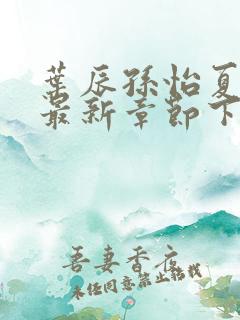 葉辰孫怡夏
最新章節下
吾妻香夜
未经同意禁止转载